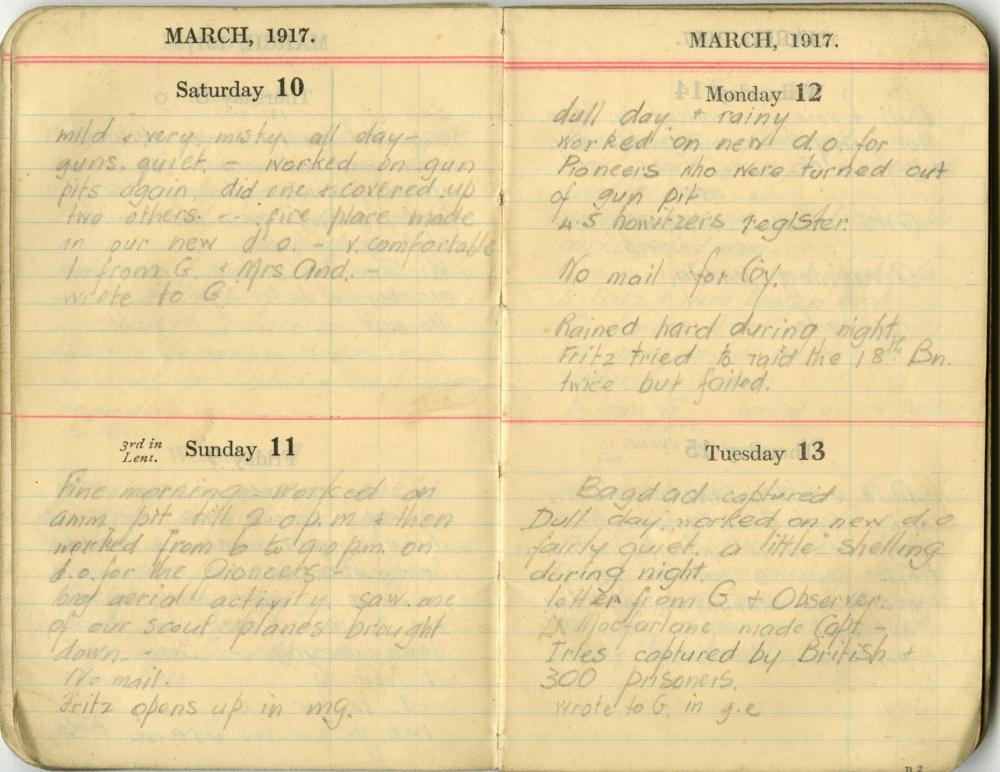 MARCH, 1917.
Saturday 10
mild & very misty all day -
guns. quiet. - worked on gun
pits again, did one & covered up
two others. - fire place made
in our new d.o. - v. comfortable
1 from G. & Mrs And. -
wrote to G.
3rd in
Lent.
Sunday 11
Fine morning - worked on
amm. pit till 2.0 p.m & then
worked from 6 to 9.0 p.m. on
d.o. for the Pioneers -
big aerial activity. saw one
of our scout planes brought
down. -
No mail.
Fritz opens up in mg.
MARCH, 1917.
Monday 12
dull day & rainy
worked on new d.o. for
Pioneers who were turned out
of gun pit
4.5 howitzers register.
No mail for Coy.
Rained hard during night.
Fritz tried to raid the 18th Bn.
twice but failed.
Tuesday 13
Bagdad captured
Dull day, worked on new d.o.
fairly quiet. a little shelling
during night.
letter from G. & Observer.
Lt Macfarlane made Capt -
Irles captured by British &
300 prisoners.
wrote to G. in g.e
B 2